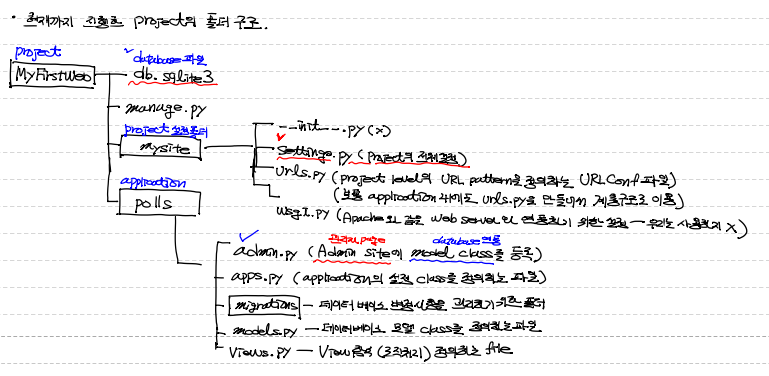 · 현재까지 진행한 project의 폴더 구조.
project
MyFirstWeb
✓ database 파일
db.sqlite3
manage.py
project 설정폴더
mysite
__init__.py (x)
✓
settings.py (project의 전체 설정)
urls.py (project level의 URL pattern을 정의하는 URLConf 파일)
(보통 application 내에도 urls.py를 만들어서 계층구조로 이용)
wsgi.py (Apache와 같은 Web server와 연동하기 위한 설정 → 우리는 사용하지 X)
application
polls
관리자 page
database 연동
✓
admin.py (Admin site에 model class를 등록)
apps.py (application의 설정 class를 정의하는 파일)
migrations — 데이터베이스 변경사항을 관리하기 위한 폴더
models.py — 데이터베이스 모델 class를 정의하는 파일
views.py — View 함수 (로직처리) 정의하는 file